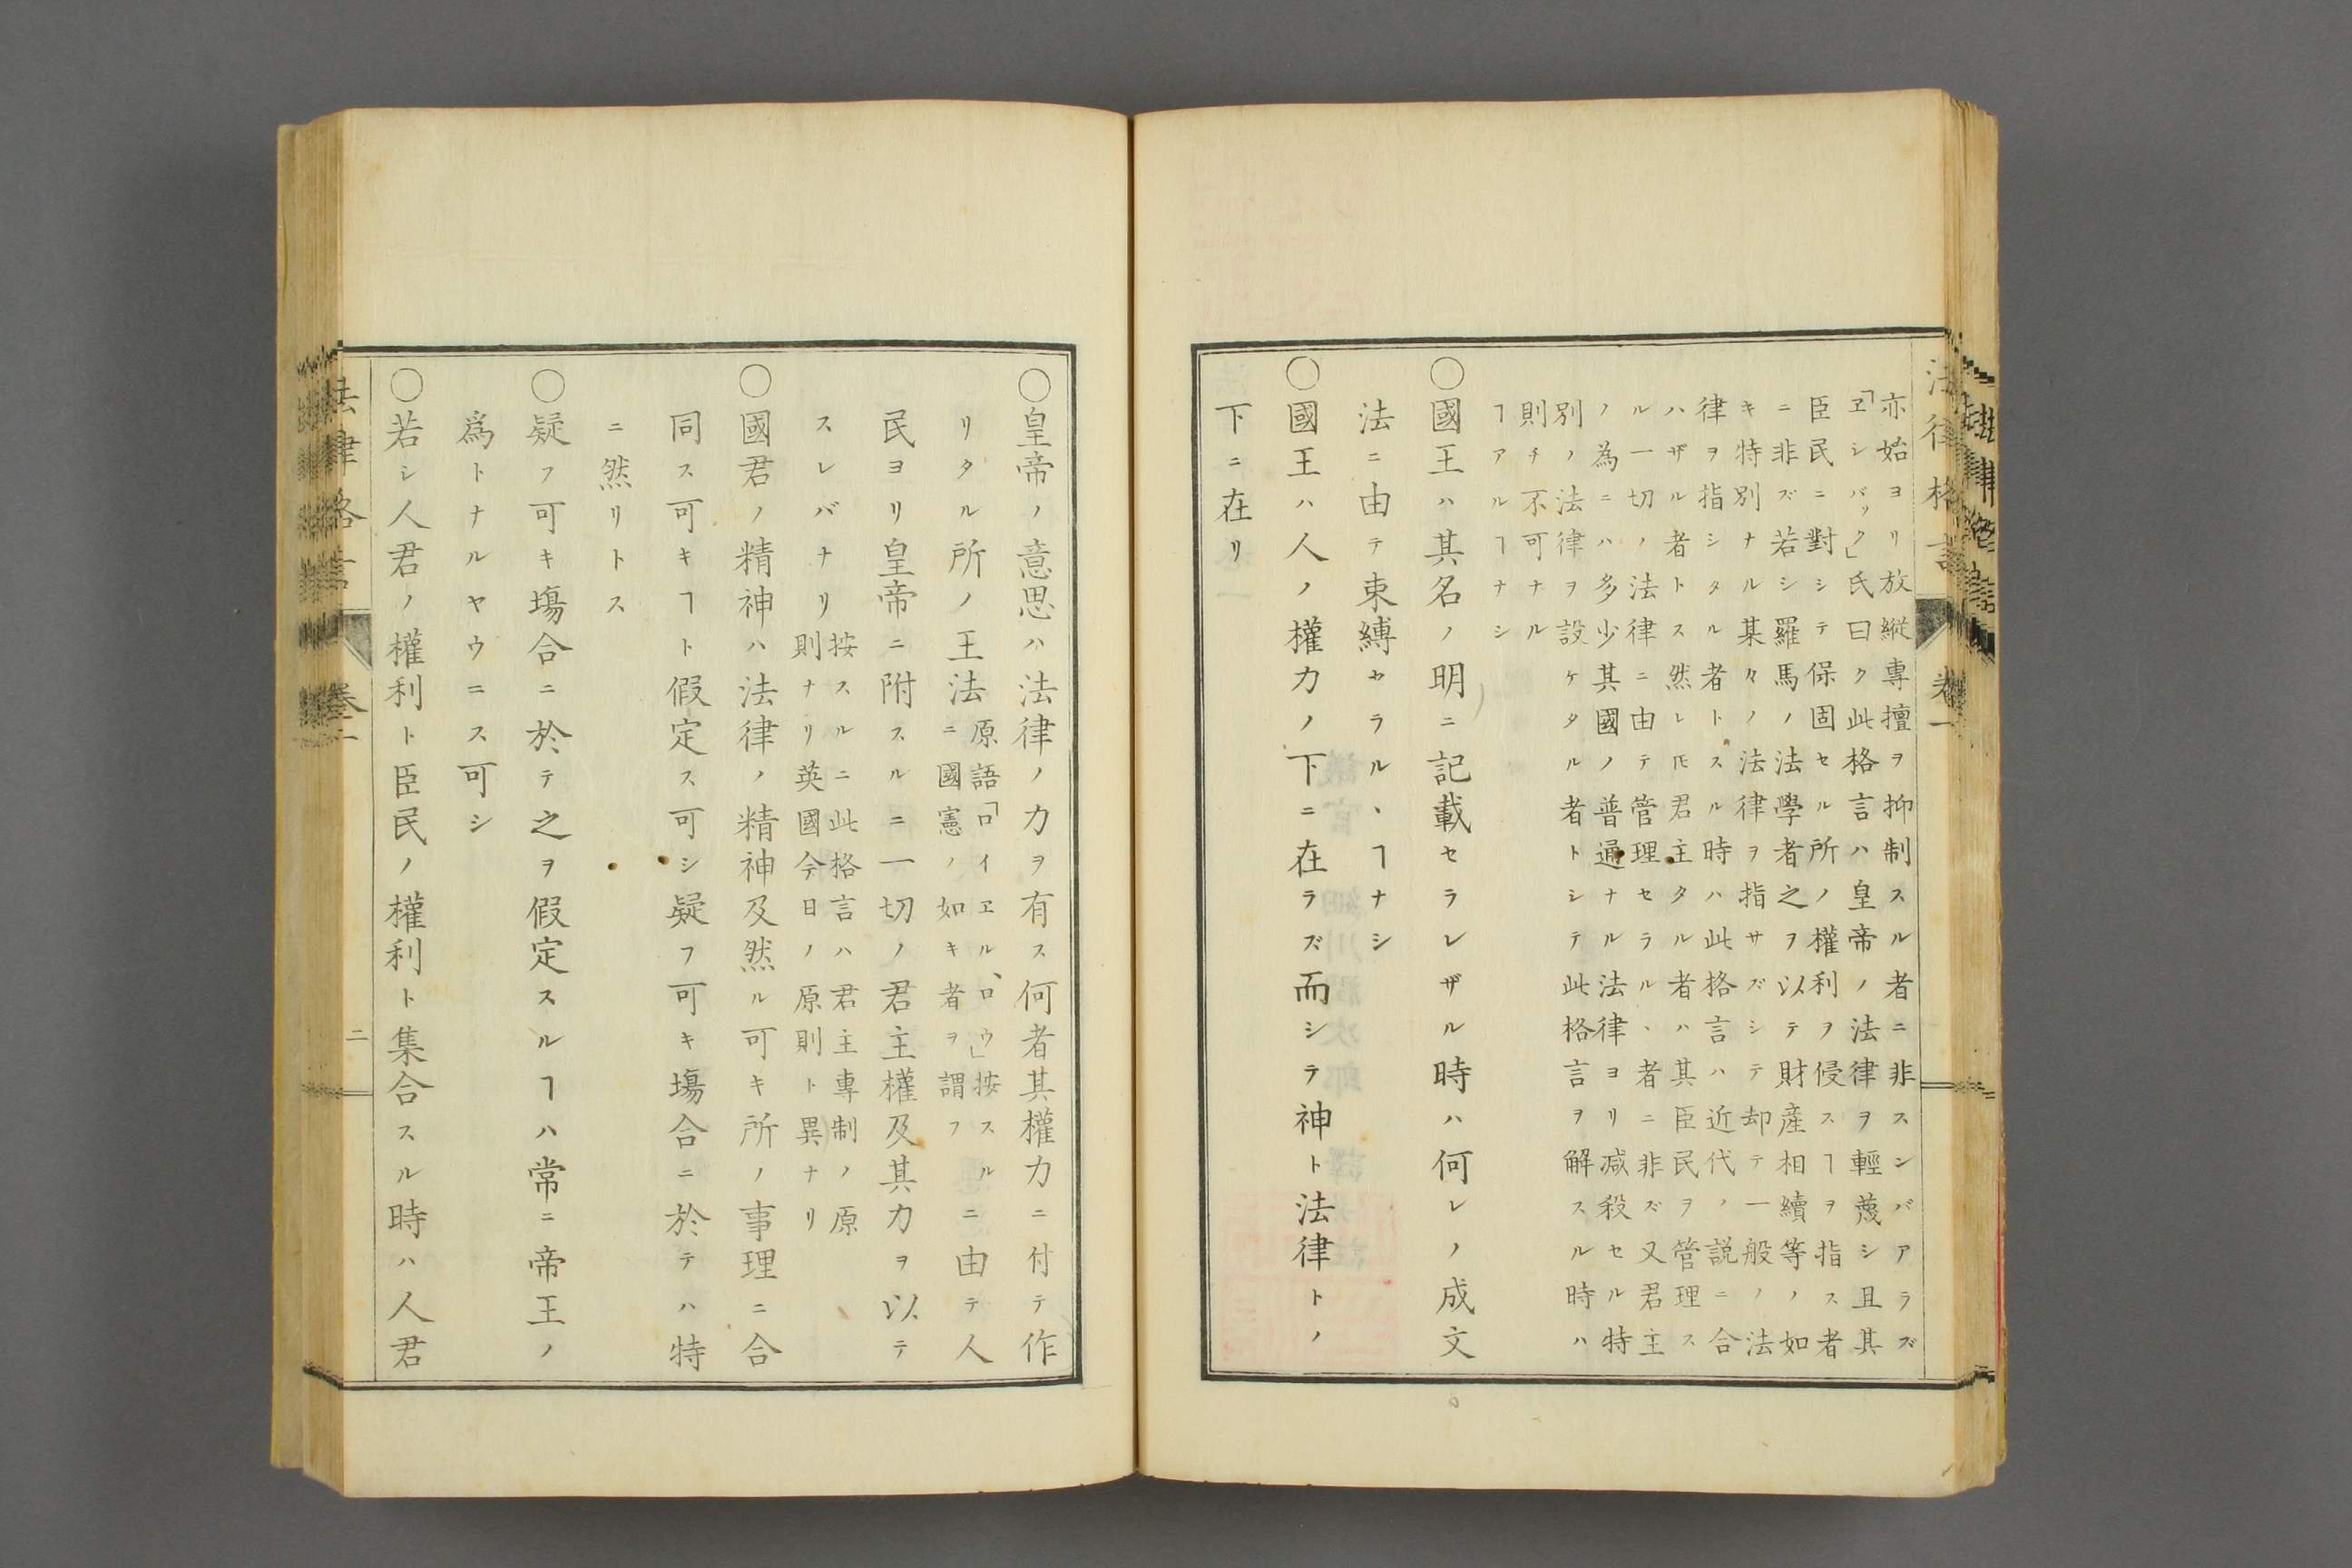 法律格言 卷一
亦始ヨリ放縱專擅ヲ抑制スル者ニ非スンバアラズ
「ヱシバック」氏曰ク此格言ハ皇帝ノ法律ヲ輕蔑シ且其
臣民ニ對シテ保固セル所ノ權利ヲ侵スヿヲ指ス者
ニ非ズ若シ羅馬ノ法學者之ヲ以テ財產相續等ノ如
キ特別ナル某々ノ法律ヲ指サズシテ却テ一般ノ法
律ヲ指シタル者トスル時ハ此格言ハ近代ノ説ニ合
ハザル者トス然レ𪜈君主タル者ハ其臣民ヲ管理ス
ル一切ノ法律ニ由テ管理セラルヽ者ニ非ズ又君主
ノ為ニハ多少其國ノ普通ナル法律ヨリ减殺セル特
別ノ法律ヲ設ケタル者トシテ此格言ヲ解スル時ハ
則チ不可ナル
ヿアルヿナシ
〇國王ハ其名ノ明ニ記載セラレザル時ハ何レノ成文
法ニ由テ束縛セラルヽヿナシ
〇國王ハ人ノ權力ノ下ニ在ラズ而シテ神ト法律トノ
下ニ在リ
〇皇帝ノ意思ハ法律ノ力ヲ有ス何者其權力ニ付テ作
リタル所ノ王法原語「ロイヱル、ロウ」按スルニ國憲ノ如キ者ヲ謂フニ由テ人
民ヨリ皇帝ニ附スルニ一切ノ君主權及其力ヲ以テ
スレバナリ按スルニ此格言ハ君主專制ノ原則ナリ英國今日ノ原則ト異ナリ
〇國君ノ精神ハ法律ノ精神及然ル可キ所ノ事理ニ合
同ス可キヿト假定ス可シ疑フ可キ塲合ニ於テハ特
ニ然リトス
〇疑フ可キ塲合ニ於テ之ヲ假定スルヿハ常ニ帝王ノ
爲トナルヤウニス可シ
〇若シ人君ノ權利ト臣民ノ權利ト集合スル時ハ人君
法律格言 卷一 二